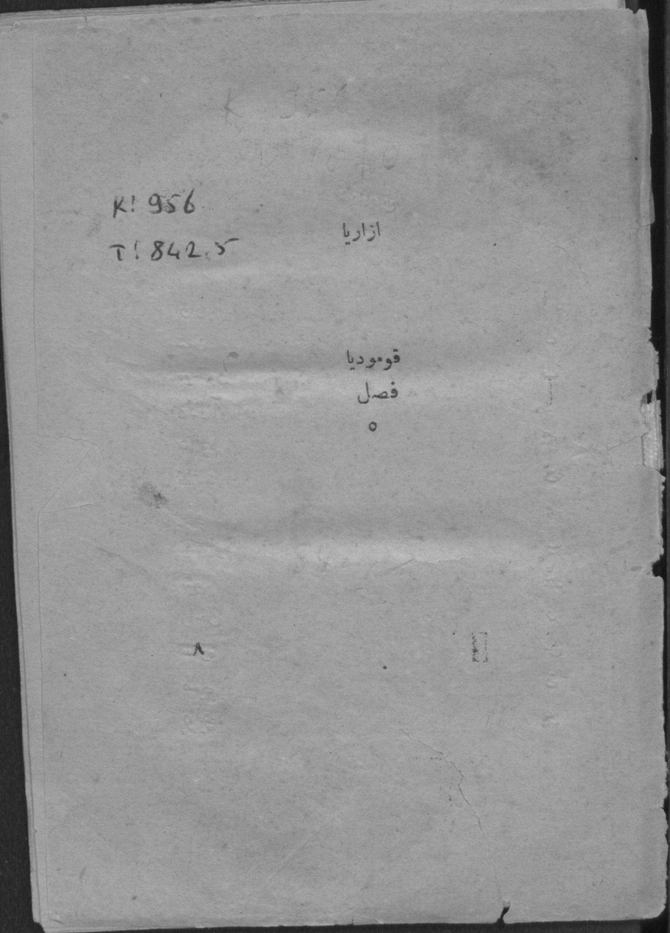 K! 956
T! 842.5
ازاریا
قومودیا
فصل
٥
٨